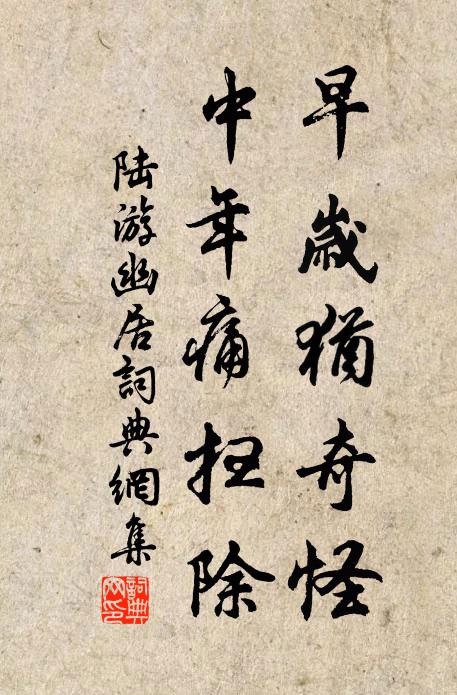 早歲猶奇怪
中年痛扫除
陆游幽居詞典網集
詞典